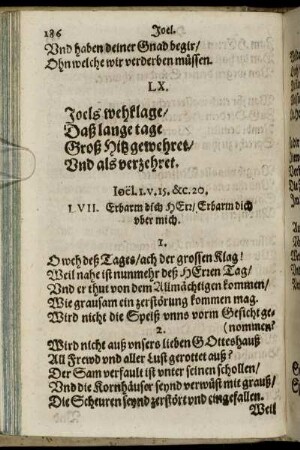 186 Joel.
Vnd haben deiner Gnad begir/
Ohn welche wir verderben müssen.
LX.
Joels wehklage/
Daß lange tage
Groß Hitz gewehret/
Vnd als verzehret.
Ioël. 1. v. 15. &c. 20.
LVII. Erbarm dich HErr/ Erbarm dich
vber mich.
1.
O weh deß Tages/ ach der grossen Klag!
Weil nahe ist nunmehr deß HErren Tag/
Vnd er thut von dem Allmächtigen kommen/
Wie grausam ein zerstörung kommen mag.
Wird nicht die Speiß vnns vorm Gesicht ge-
(nommen?
2.
Wird nicht auß vnsers lieben GOtteshauß
All Frewd vnd aller Lust gerottet auß?
Der Sam verfault ist vnter seinen schollen/
Vnd die Kornhäuser seynd verwüst mit grauß/
Die Scheuren seynd zerstört vnd eingefallen.
Weil